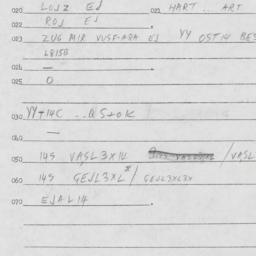 020 LOJZ EJ 021 HART... ART
022 ROJ EJ
023 ZUG MIR VUSF-ARA EJ YY OST 14 BES
L815B
024 —
025 O
030 YY+14C ..QS+OK
040 —
050 14S VASL3X14 /VASL
060 14S GEJL3XL*/ GEJLXL3X
070 EJAL14